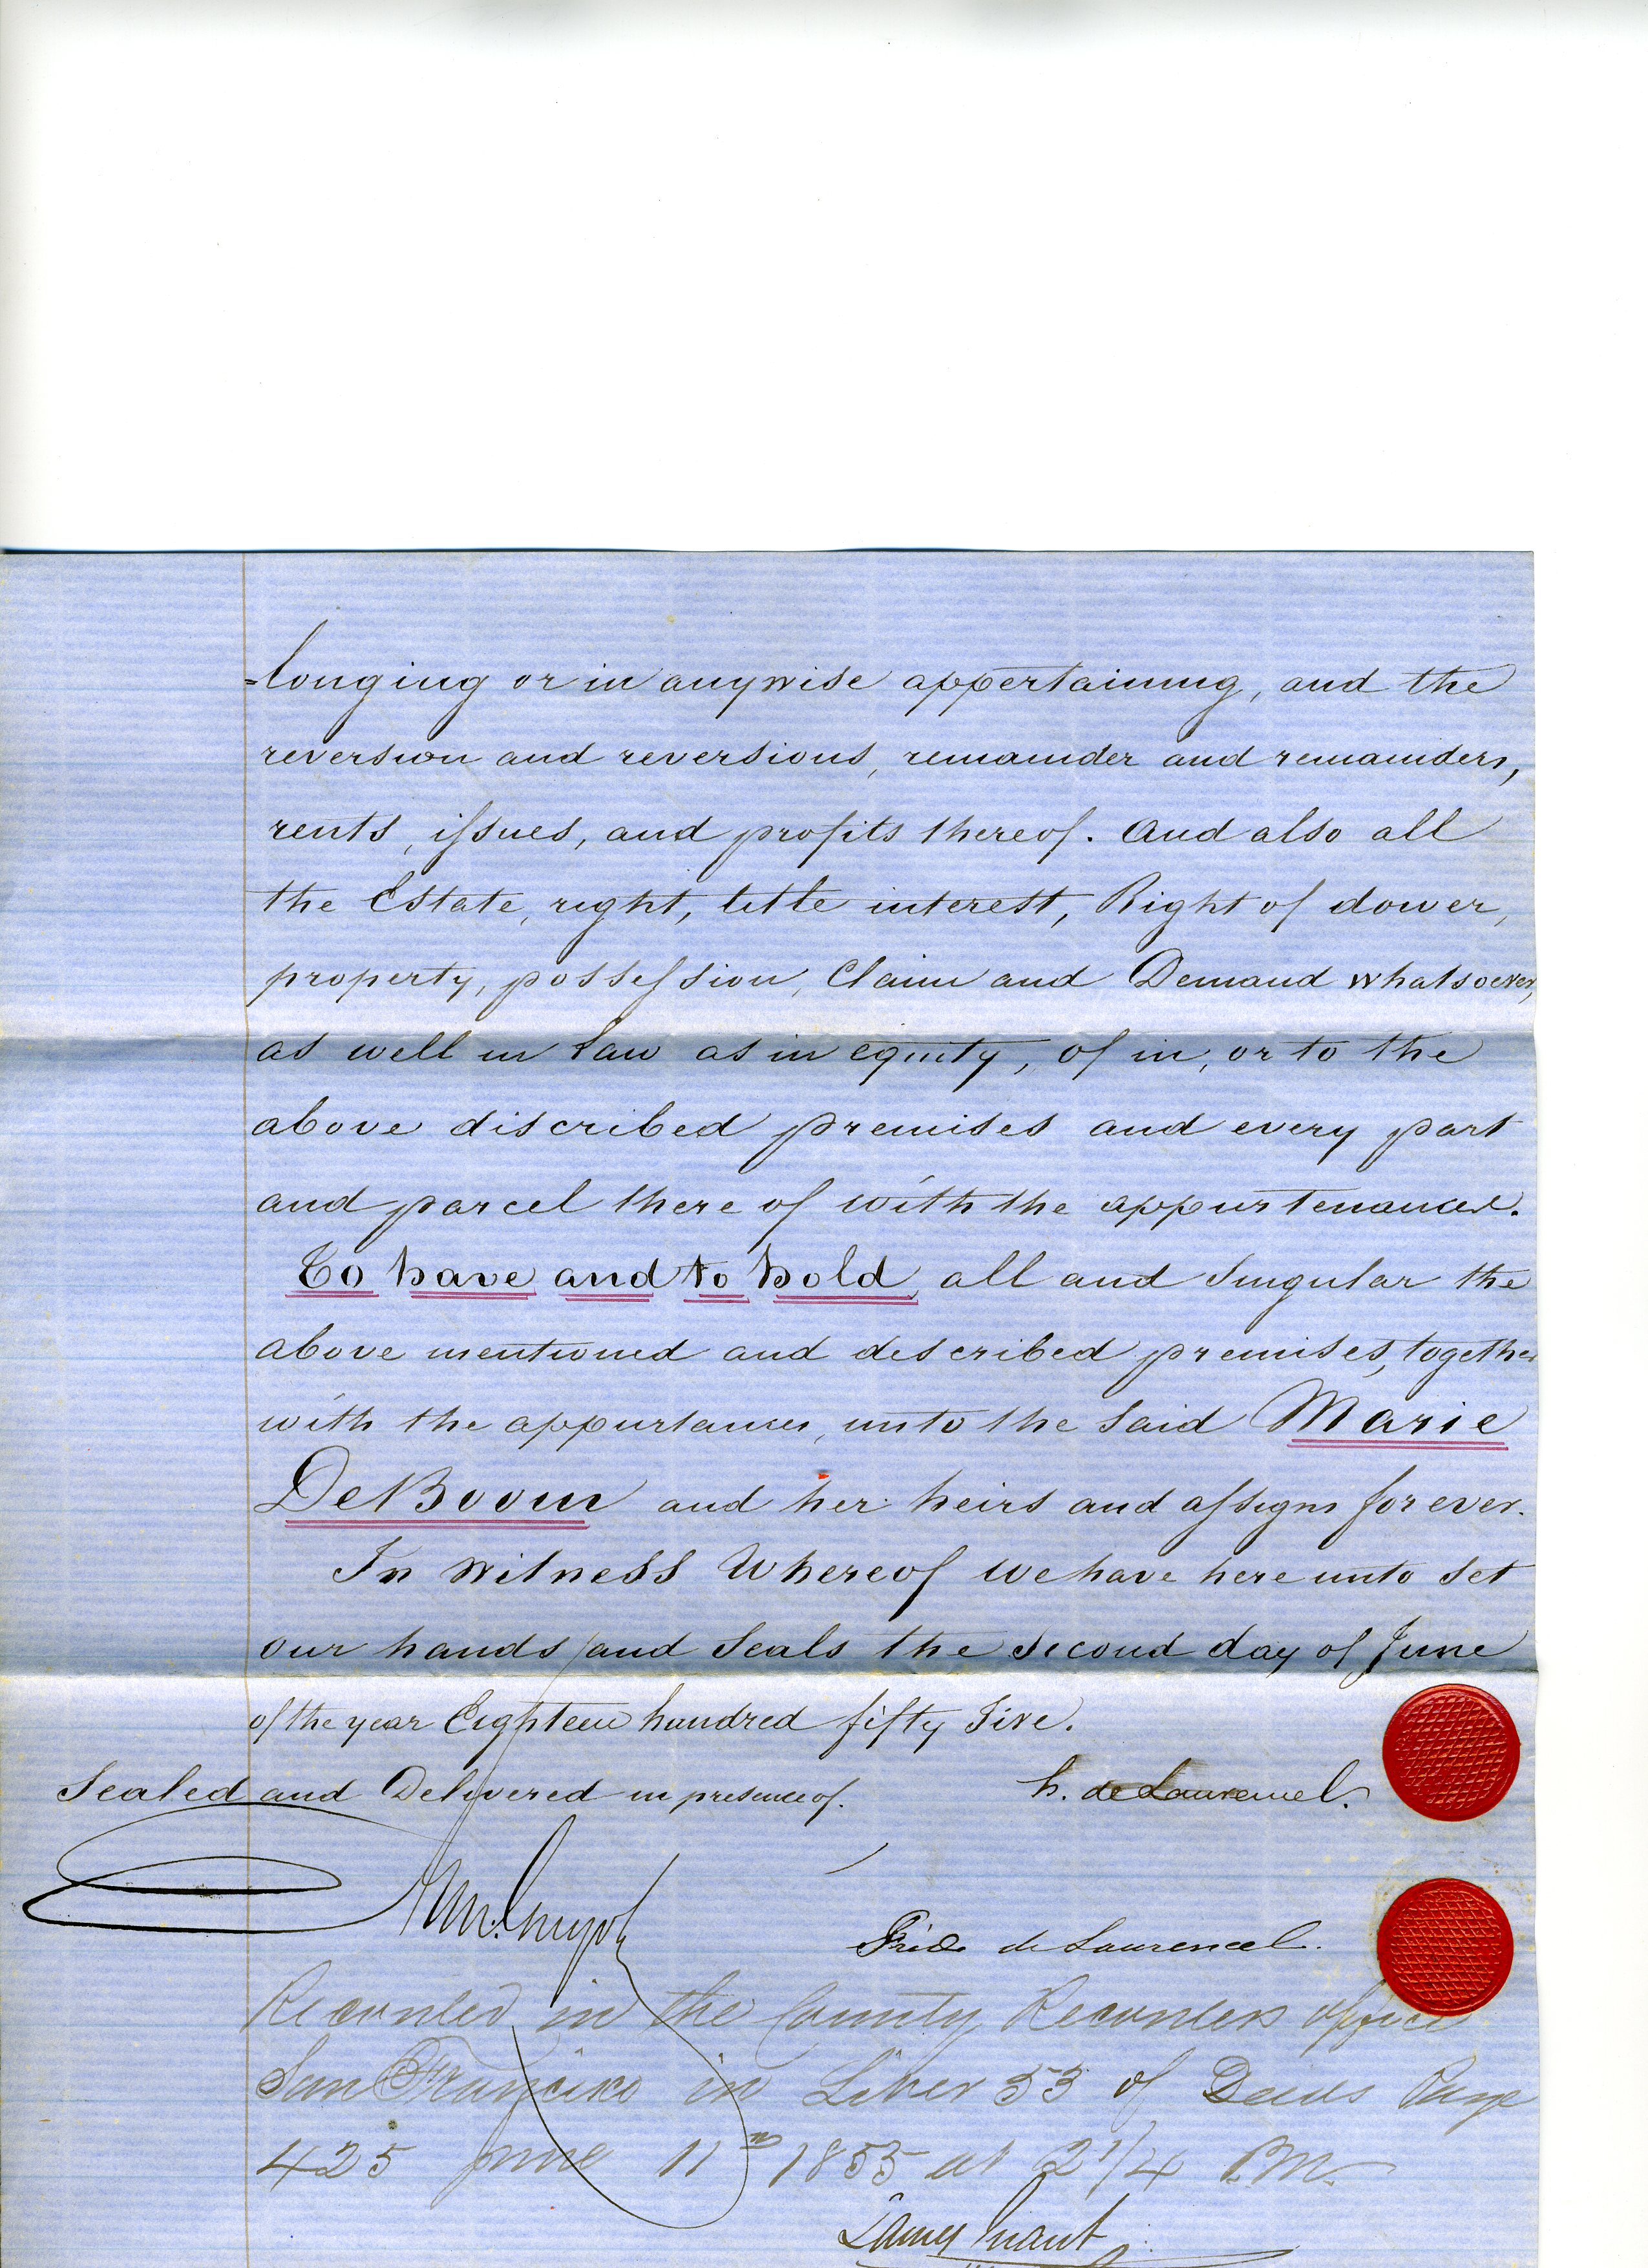 =longing or in anywise appertaining, and the
reversion and reversions, remainder and remainders,
rents, issues, and profits thereof. And also all
the Estate, right, title interest, Right of dower,
property, possession, Claim and Demand whatsoever,
as well in Law as in equity, of in, or to the
above discribed premises and every part
and parcel there of with the appurtenances.
To have and to hold, all and Singular the
above mentioned and described premises, together
with the appurtances, unto the said Marie
DeBoom and her heirs and assigns for ever.
In Witness Whereof we have here unto set
our hands and Seals the second day of June
of the year Eighteen hundred fifty five.
Sealed and Delivered in presence of. h. de Laurencel.
de Laurencel.
Recorded in the County Recorders office
San Francisco in Liber 53 of Deeds Page
425 June 11th 1855 at 2 1/4 P.M.
James Grant